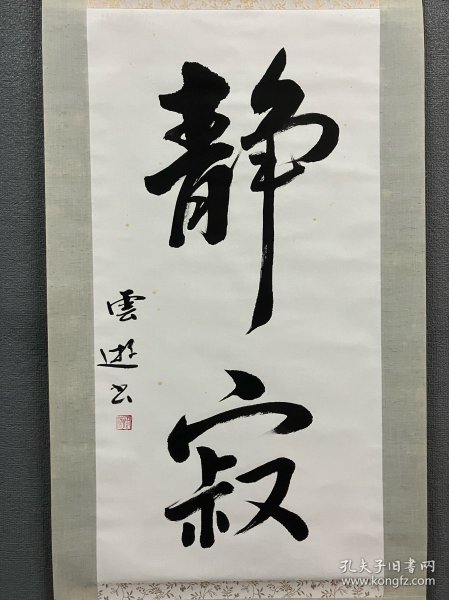 静寂
雲遊書
孔夫子旧书网
www.kongfz.com